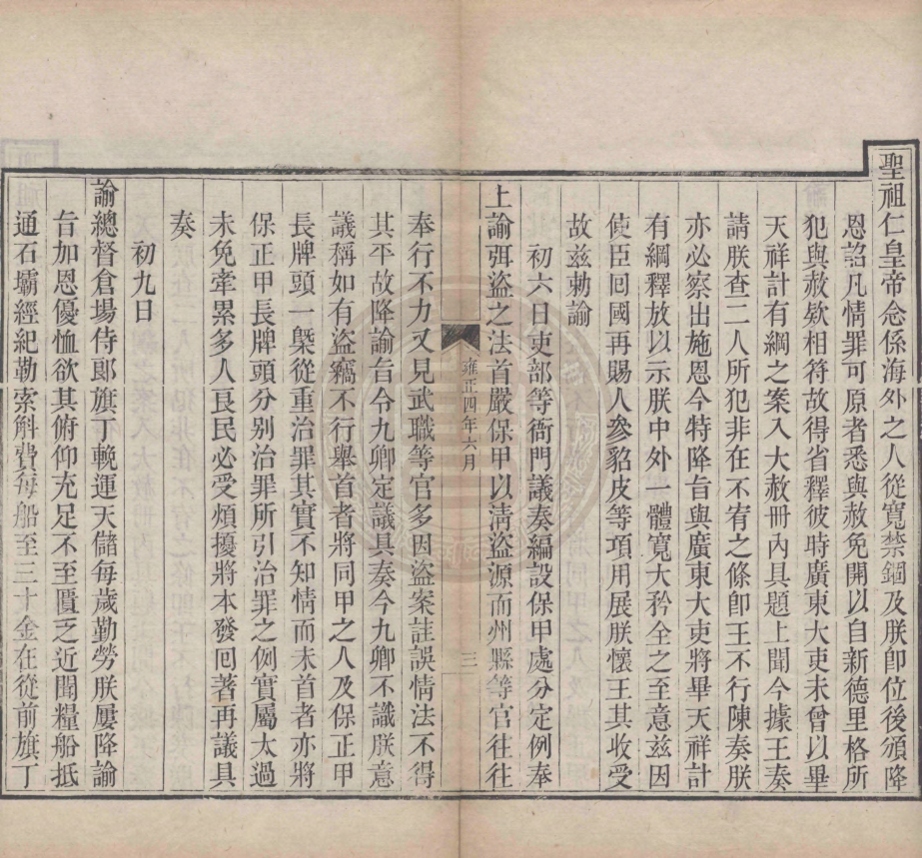 聖祖仁皇帝念係海外之人從寬禁錮及朕卽位後頒降
恩詔凡情罪可原者悉與赦免開以自新德里格所
犯與赦欵相符故得省釋彼時廣東大吏未曾以畢
天祥計有綱之案入大赦冊內具題上聞今據王奏
請朕查二人所犯非在不宥之條卽王不行陳奏朕
亦必察出施恩今特降旨與廣東大吏將畢天祥計
有綱釋放以示朕中外一體寬大矜全之至意兹因
使臣回國再賜人參貂皮等項用展朕懷王其收受
故兹勅諭
初六日吏部等衙門議奏編設保甲處分定例奉
上諭弭盜之法首嚴保甲以淸盜源而州縣等官往往
雍正四年六月
三
奉行不力又見武職等官多因盜案註誤情法不得
其平故降諭旨令九卿定議具奏今九卿不識朕意
議稱如有盜竊不行舉首者將同甲之人及保正甲
長牌頭一槩從重治罪其實不知情而未首者亦將
保正甲長牌頭分别治罪所引治罪之例實屬太過
未免牽累多人良民必受煩擾將本發囘著再議具
奏
初九日
諭總督倉場侍郞旗丁輓運天儲每歲勤勞朕屢降諭
旨加恩優恤欲其俯仰充足不至匱乏近聞糧船抵
通石壩經紀勒索斛費每船至三十金在從前旗丁